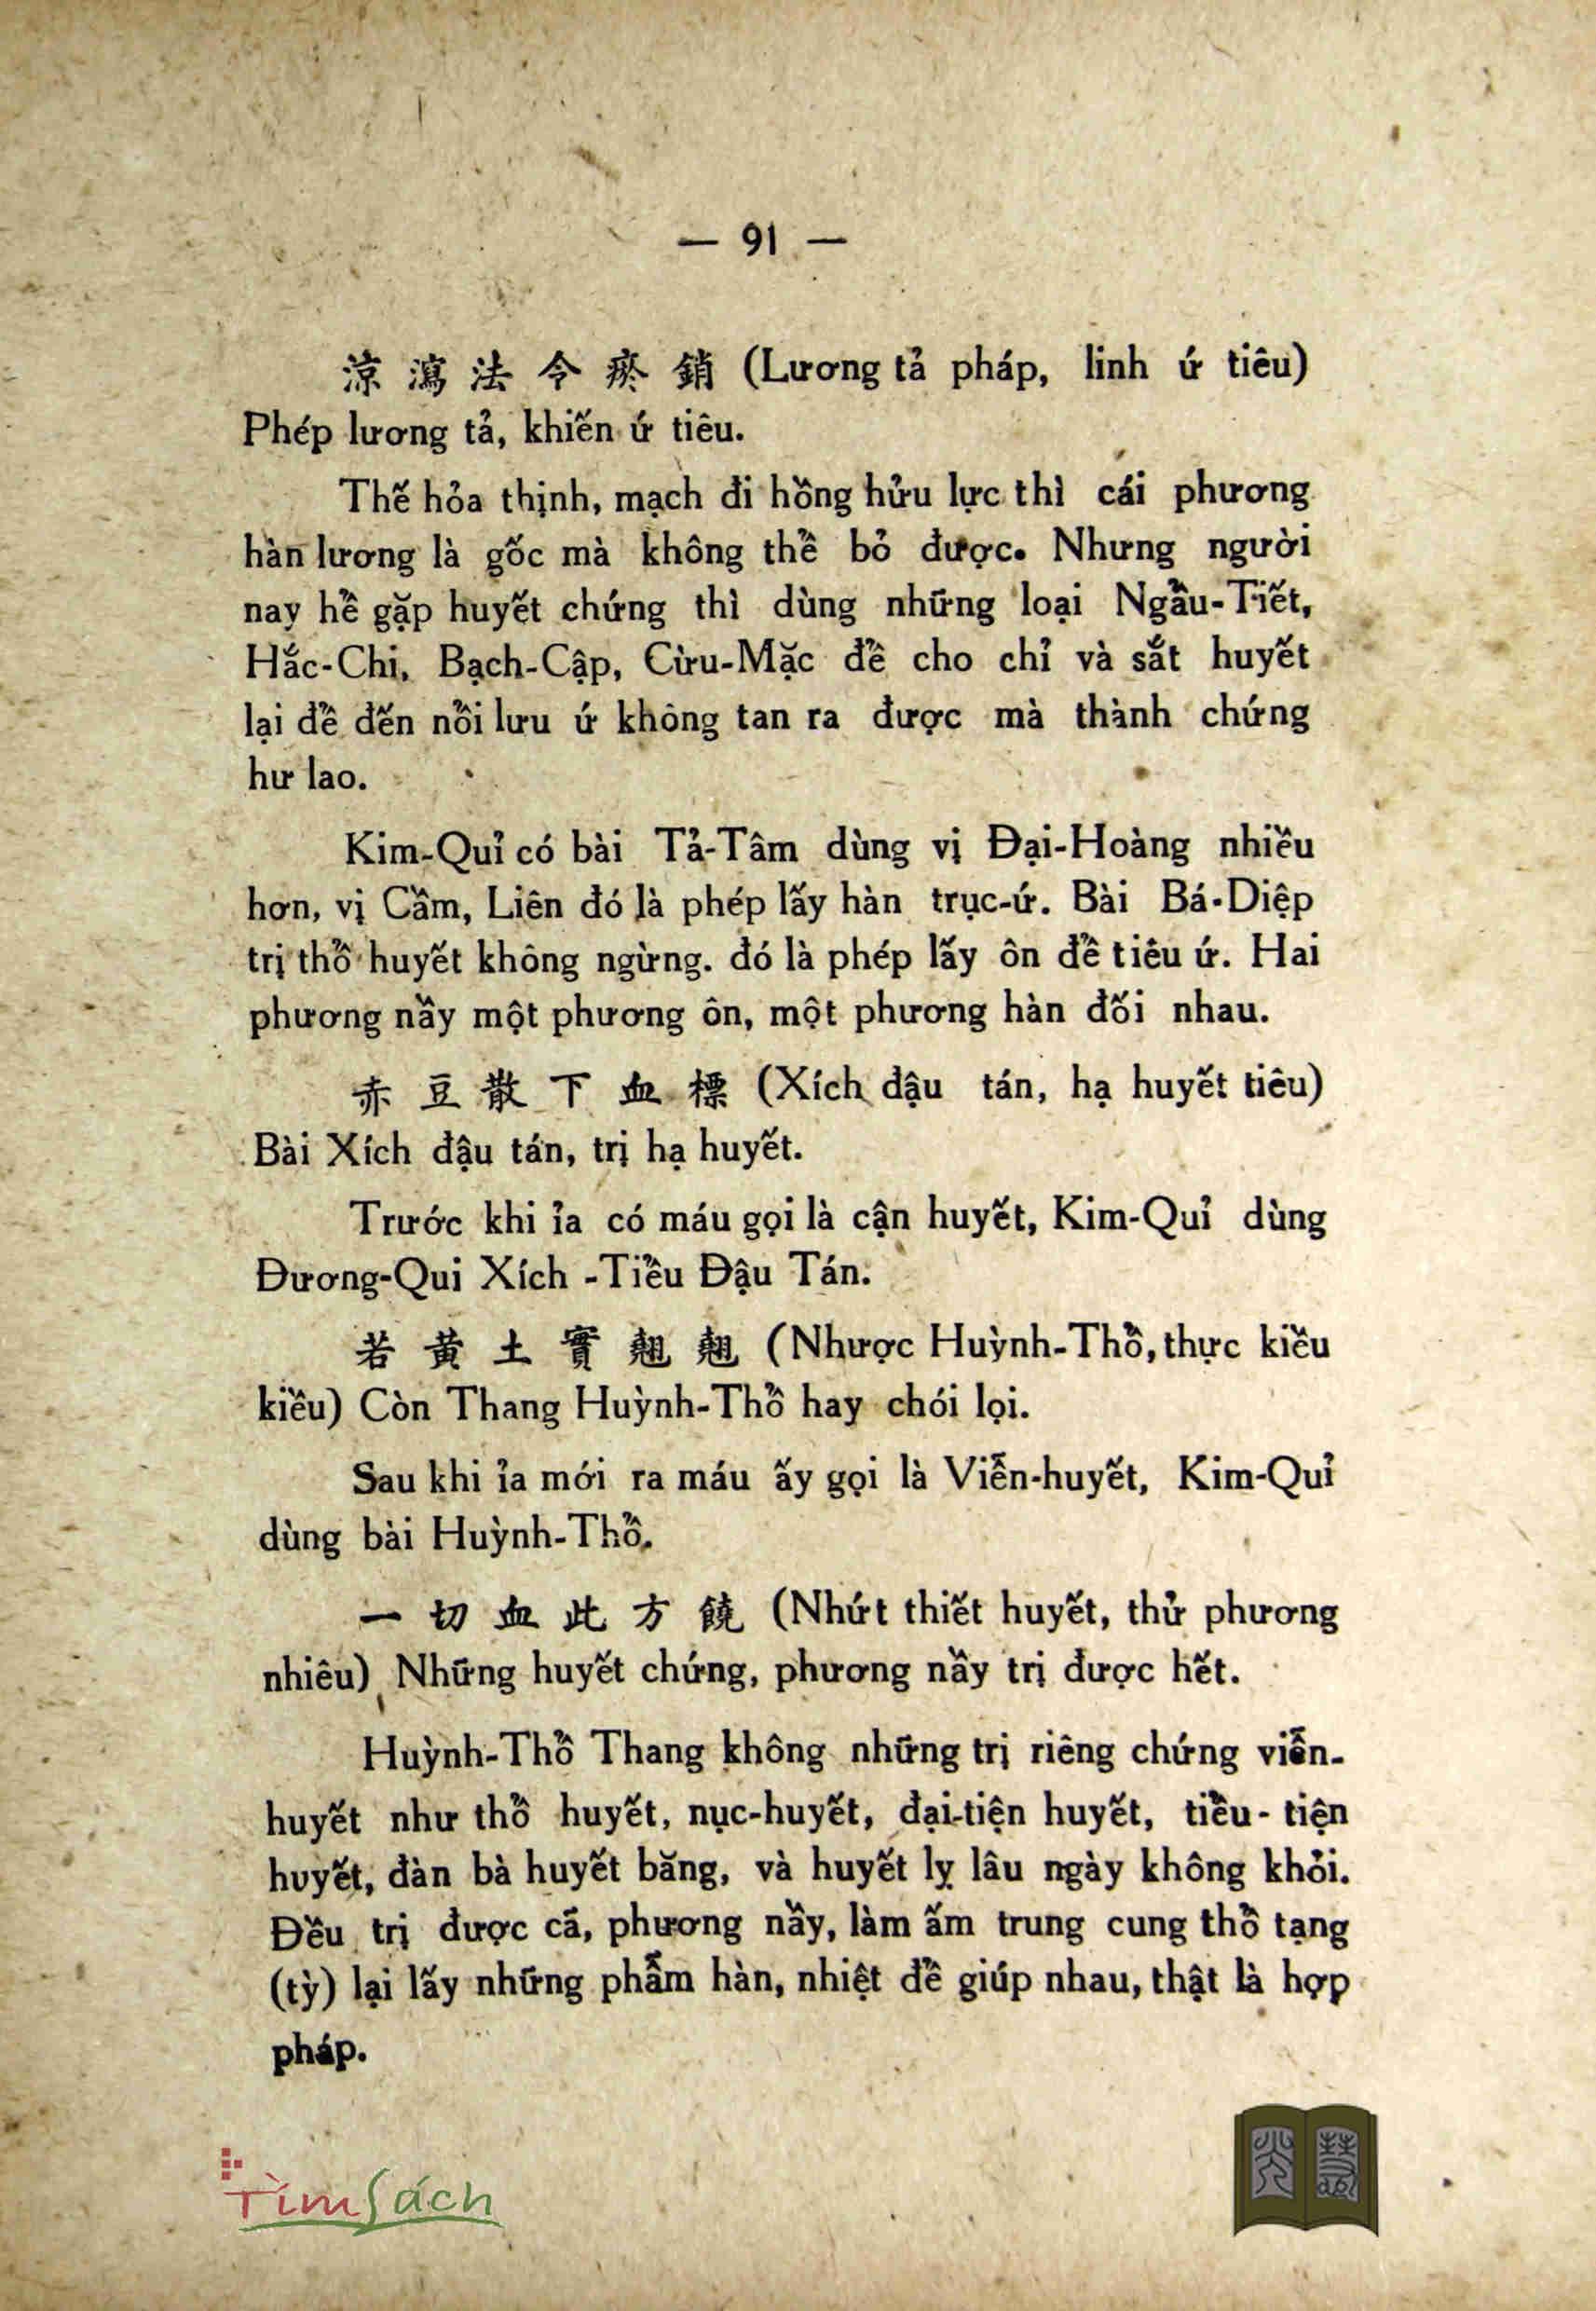 — 91 —
涼瀉法令瘀銷 (Lương tả pháp, linh ứ tiêu)
Phép lương tả, khiến ứ tiêu.
Thế hỏa thịnh, mạch đi hồng hửu lực thì cái phương
hàn lương là gốc mà không thể bỏ được. Nhưng người
nay hễ gặp huyết chứng thì dùng những loại Ngẫu-Tiết,
Hắc-Chi, Bạch-Cập, Cừu-Mặc để cho chỉ và sắt huyết
lại để đến nỗi lưu ứ không tan ra được mà thành chứng
hư lao.
Kim-Quỉ có bài Tả-Tâm dùng vị Đại-Hoàng nhiều
hơn, vị Cầm, Liên đó là phép lấy hàn trục-ứ. Bài Bá-Diệp
trị thổ huyết không ngừng. đó là phép lấy ôn để tiêu ứ. Hai
phương nầy một phương ôn, một phương hàn đối nhau.
赤豆散下血標 (Xích đậu tán, hạ huyết tiêu)
Bài Xích đậu tán, trị hạ huyết.
Trước khi ỉa có máu gọi là cận huyết, Kim-Quỉ dùng
Đương-Qui Xích -Tiểu Đậu Tán.
若黃土實翹翹 (Nhược Huỳnh-Thổ, thực kiều
kiều) Còn Thang Huỳnh-Thổ hay chói lọi.
Sau khi ỉa mới ra máu ấy gọi là Viễn-huyết, Kim-Quỉ
dùng bài Huỳnh-Thổ.
一切血此方饒 (Nhứt thiết huyết, thử phương
nhiêu) Những huyết chứng, phương nầy trị được hết.
Huỳnh-Thổ Thang không những trị riêng chứng viễn-
huyết như thổ huyết, nục-huyết, đại-tiện huyết, tiểu- tiện
huyết, đàn bà huyết băng, và huyết lỵ lâu ngày không khỏi.
Đều trị được cả, phương nầy, làm ấm trung cung thổ tạng
(tỳ) lại lấy những phẩm hàn, nhiệt để giúp nhau, thật là hợp
pháp.
TìmSách